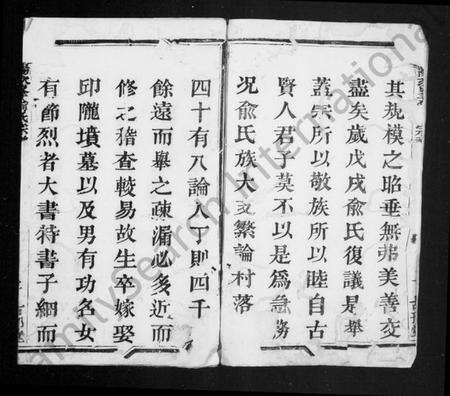 其規模之昭垂無弗美善交
盡矣歲戊戌俞氏復議是舉
蓋宗所以敬族所以睦自古
賢人君子莫不以是為急務
况俞氏族大支繁論村落
四十有八論人丁則四千
餘遠而舉之疎漏必多近而
修之稽查較易故生卒嫁娶
邱隴墳墓以及男有功名女
有節烈者大書特書子綱而
FamilySearch International